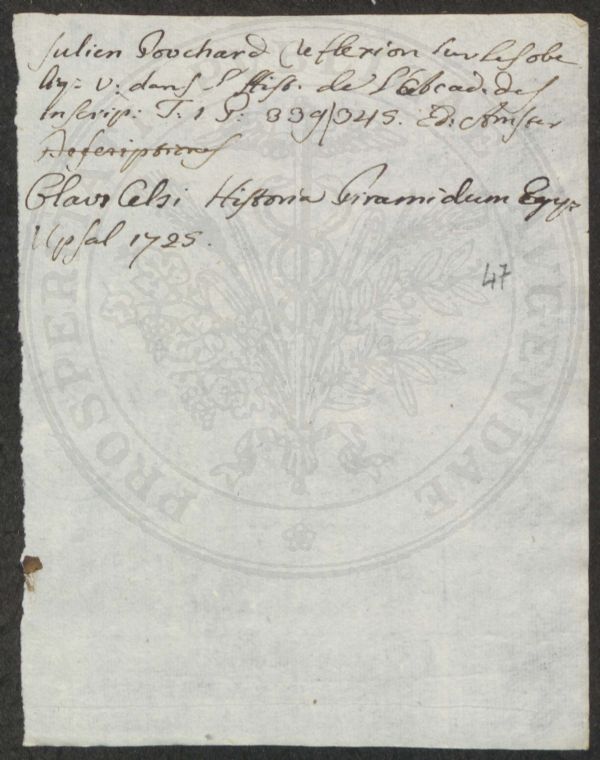 Julien Pouchard Reflexion sur les obe
liz= v: dans l'Hist. de l'Acad. des
Inscrip: T: 1 P: 339/345. Ed: Amster
Descriptiones
Olavi Celsi Historia Piramidum Egyp=
Upsal 1725.
47
PROSPER AUGENDAE